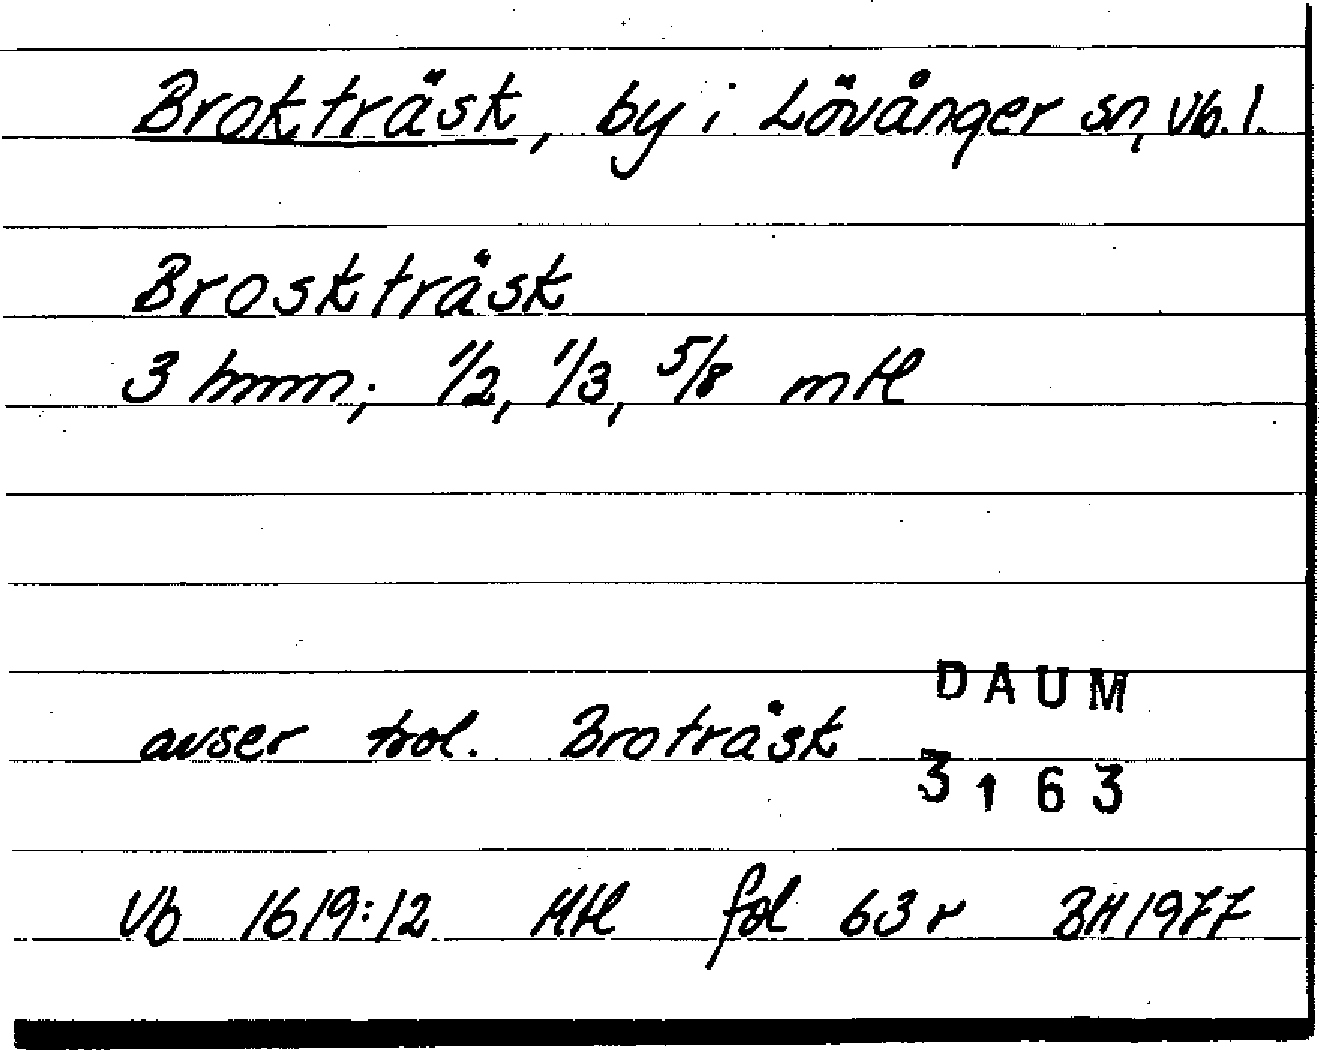 Brokträsk, by i Lövånger sn, Vb. l.
Broskträsk
3 hmm; 1/2, 1/3, 5/8 mtl
DAUM
avser trol. Broträsk
3163
Vb 1619:12 Mtl fol 63 r BH 1977